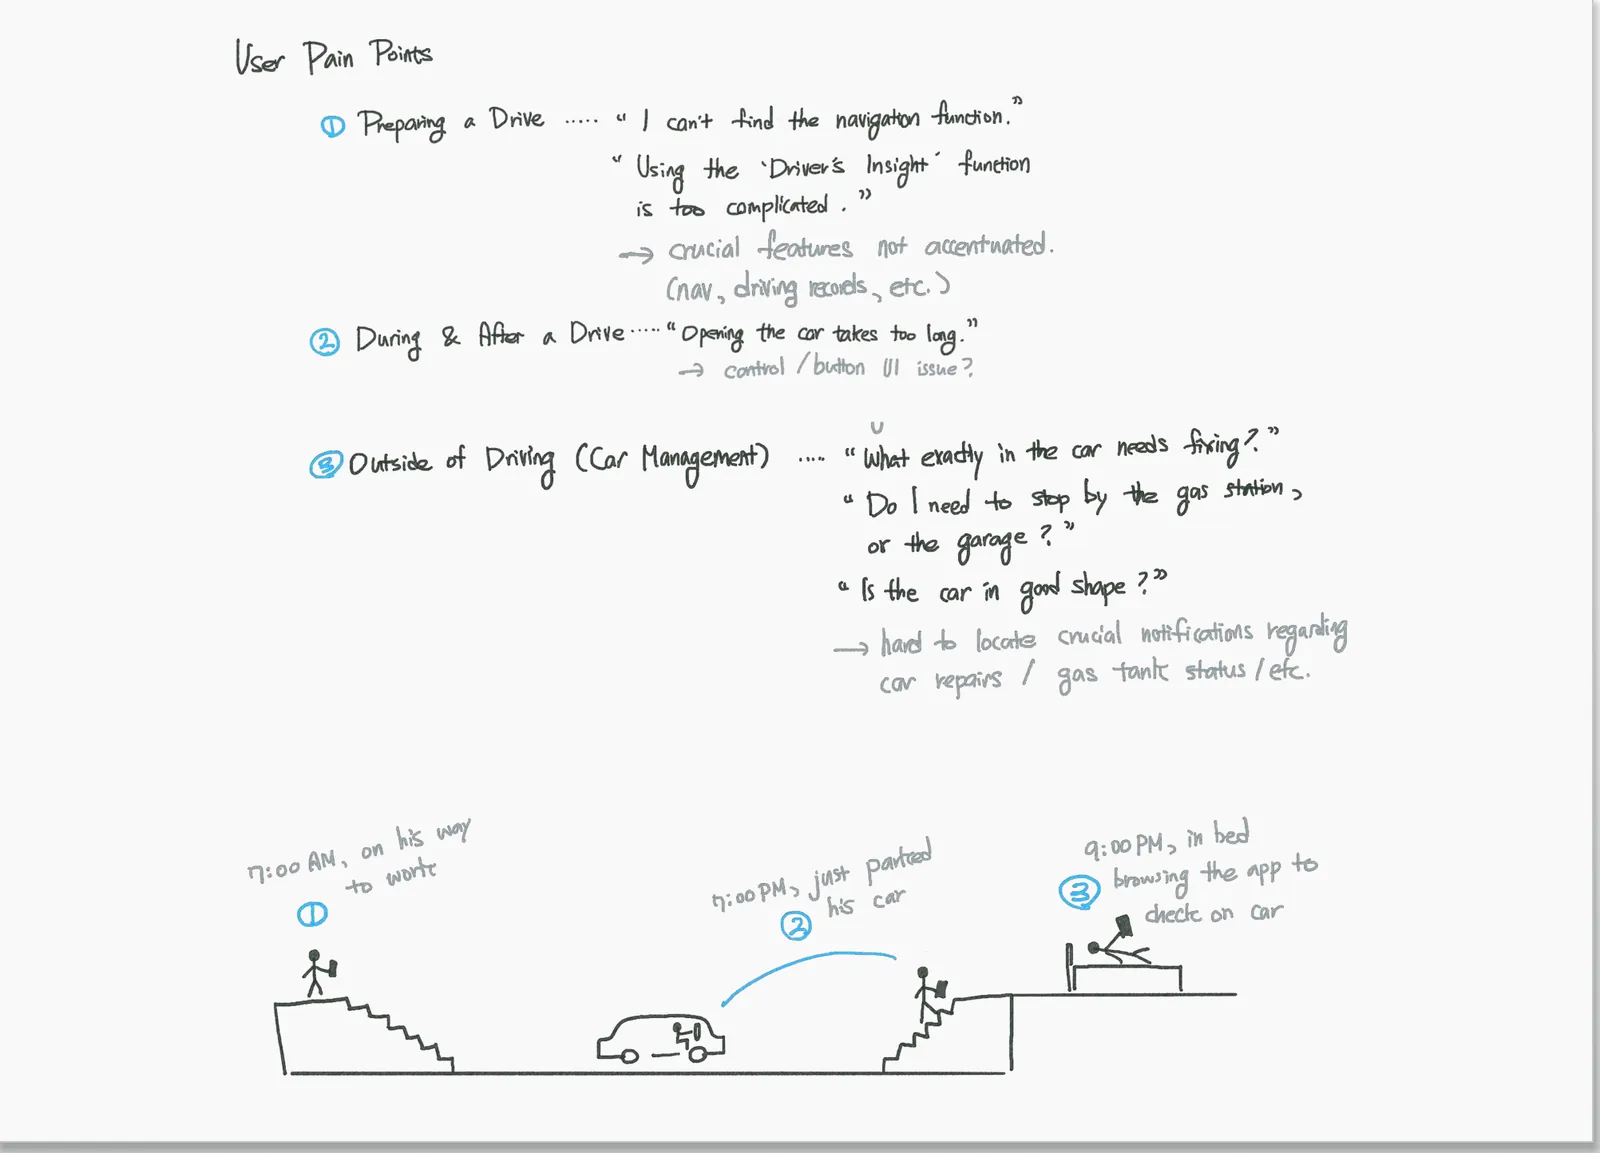 User Pain Points
① Preparing a Drive ..... "I can't find the navigation function."
"Using the 'Driver's Insight' function
is too complicated."
→ crucial features not accentuated.
(nav, driving records, etc.)
② During & After a Drive ..... "Opening the car takes too long."
→ control / button UI issue?
③ Outside of Driving (Car Management) .... "What exactly in the car needs fixing?"
"Do I need to stop by the gas station,
or the garage?"
"Is the car in good shape?"
→ hard to locate crucial notifications regarding
car repairs / gas tank status / etc.
7:00 AM, on his way
to work
①
7:00 PM, just parked
his car
②
9:00 PM, in bed
browsing the app to
check on car
③